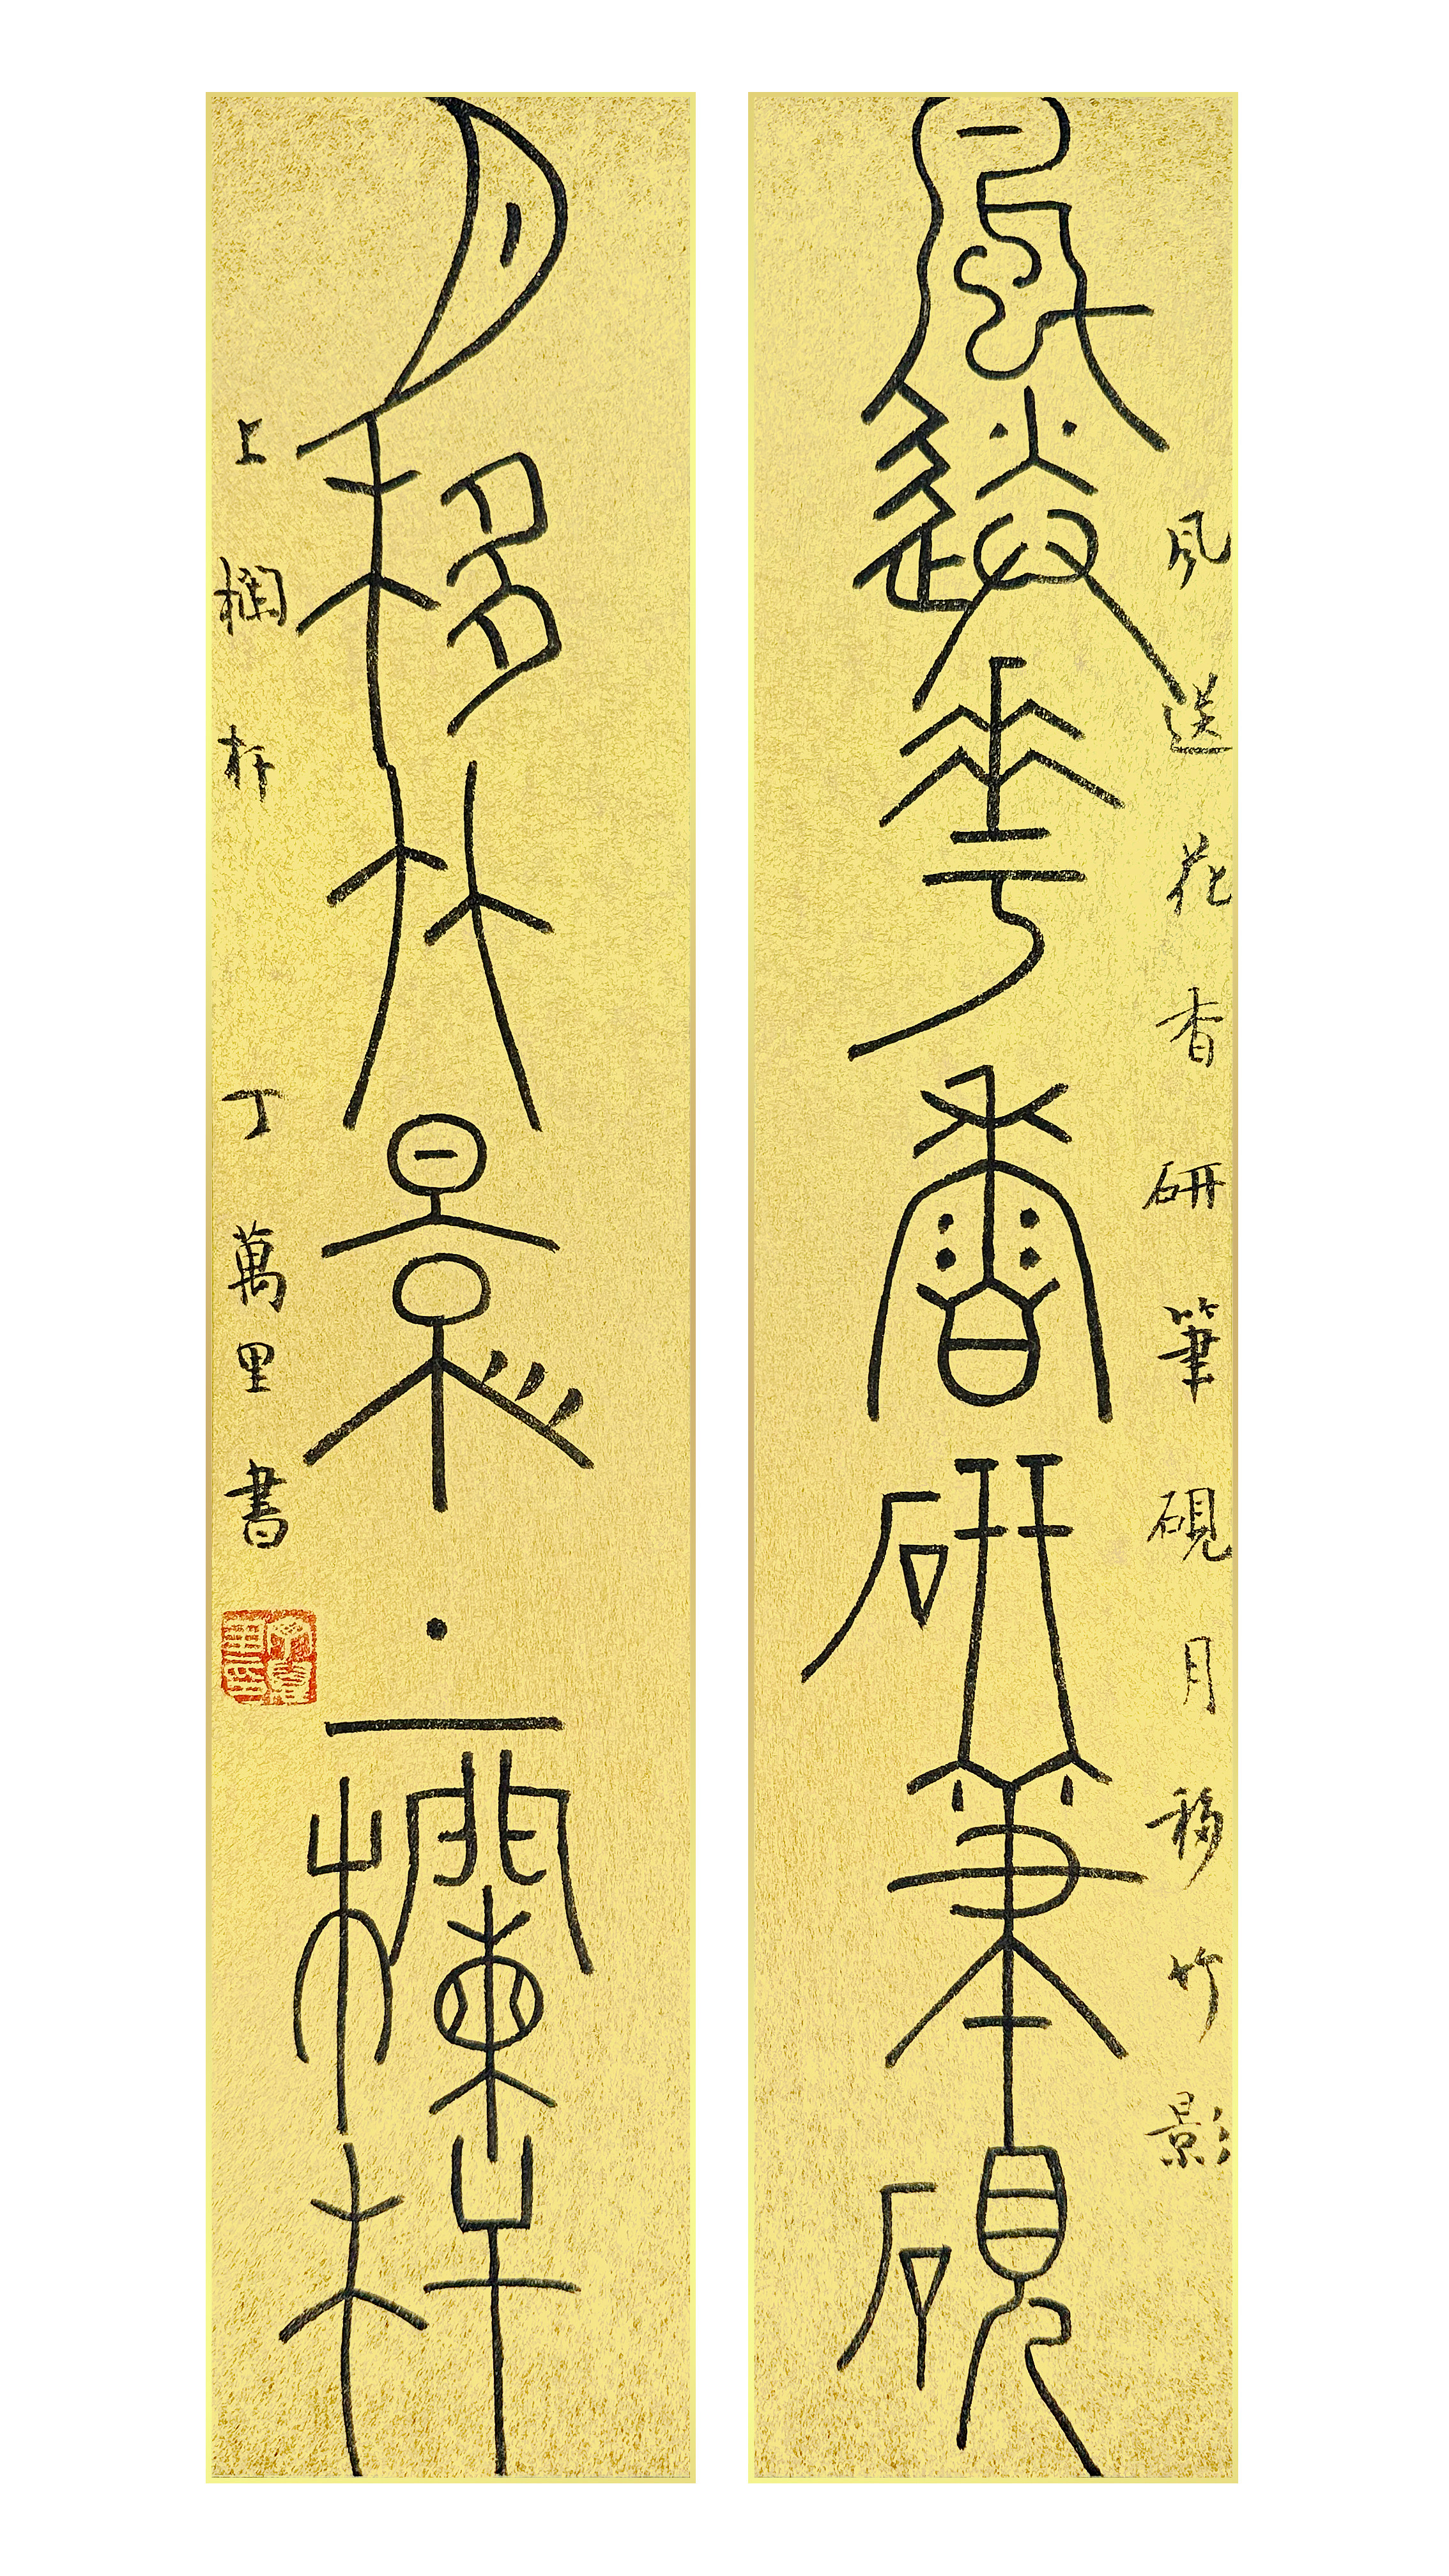 風送華香研筆硯
风送花香研筆硯月移竹影
月移竹影上欄杆
上欄杆
丁萬里書